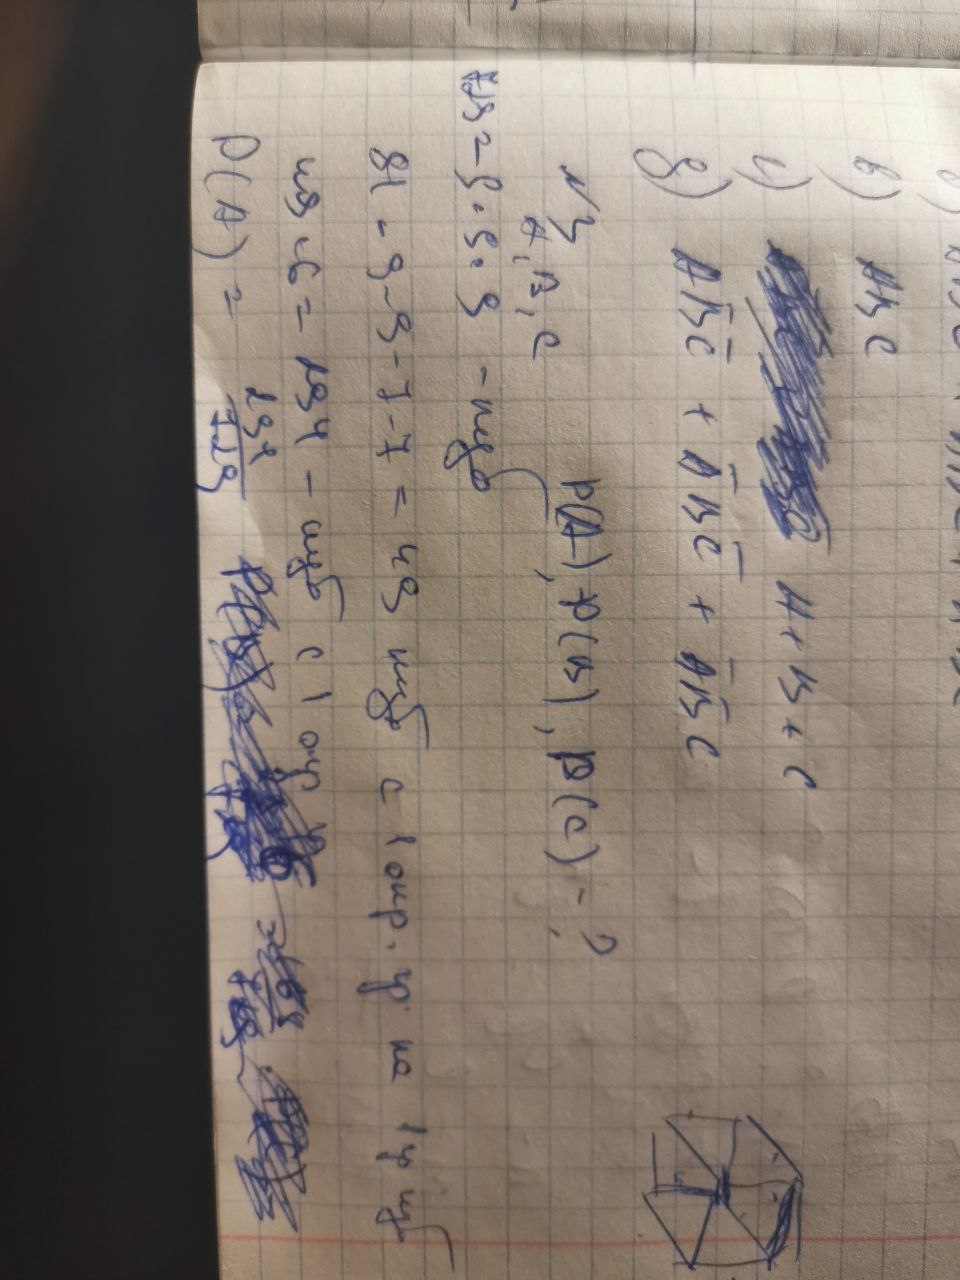 в) ABC
г) A + B + C
д) AB̄C̄ + ĀBC̄ + ĀB̄C
№3
A, B, C P(A), P(B), P(C) - ?
729 = 9·9·9 - куб
81 - 9 - 9 - 7 - 7 = 49 куб с 1 окр. гр. на 1 гр куб
49·6 = 294 - куб с 1 окр
P(A) = 294/729